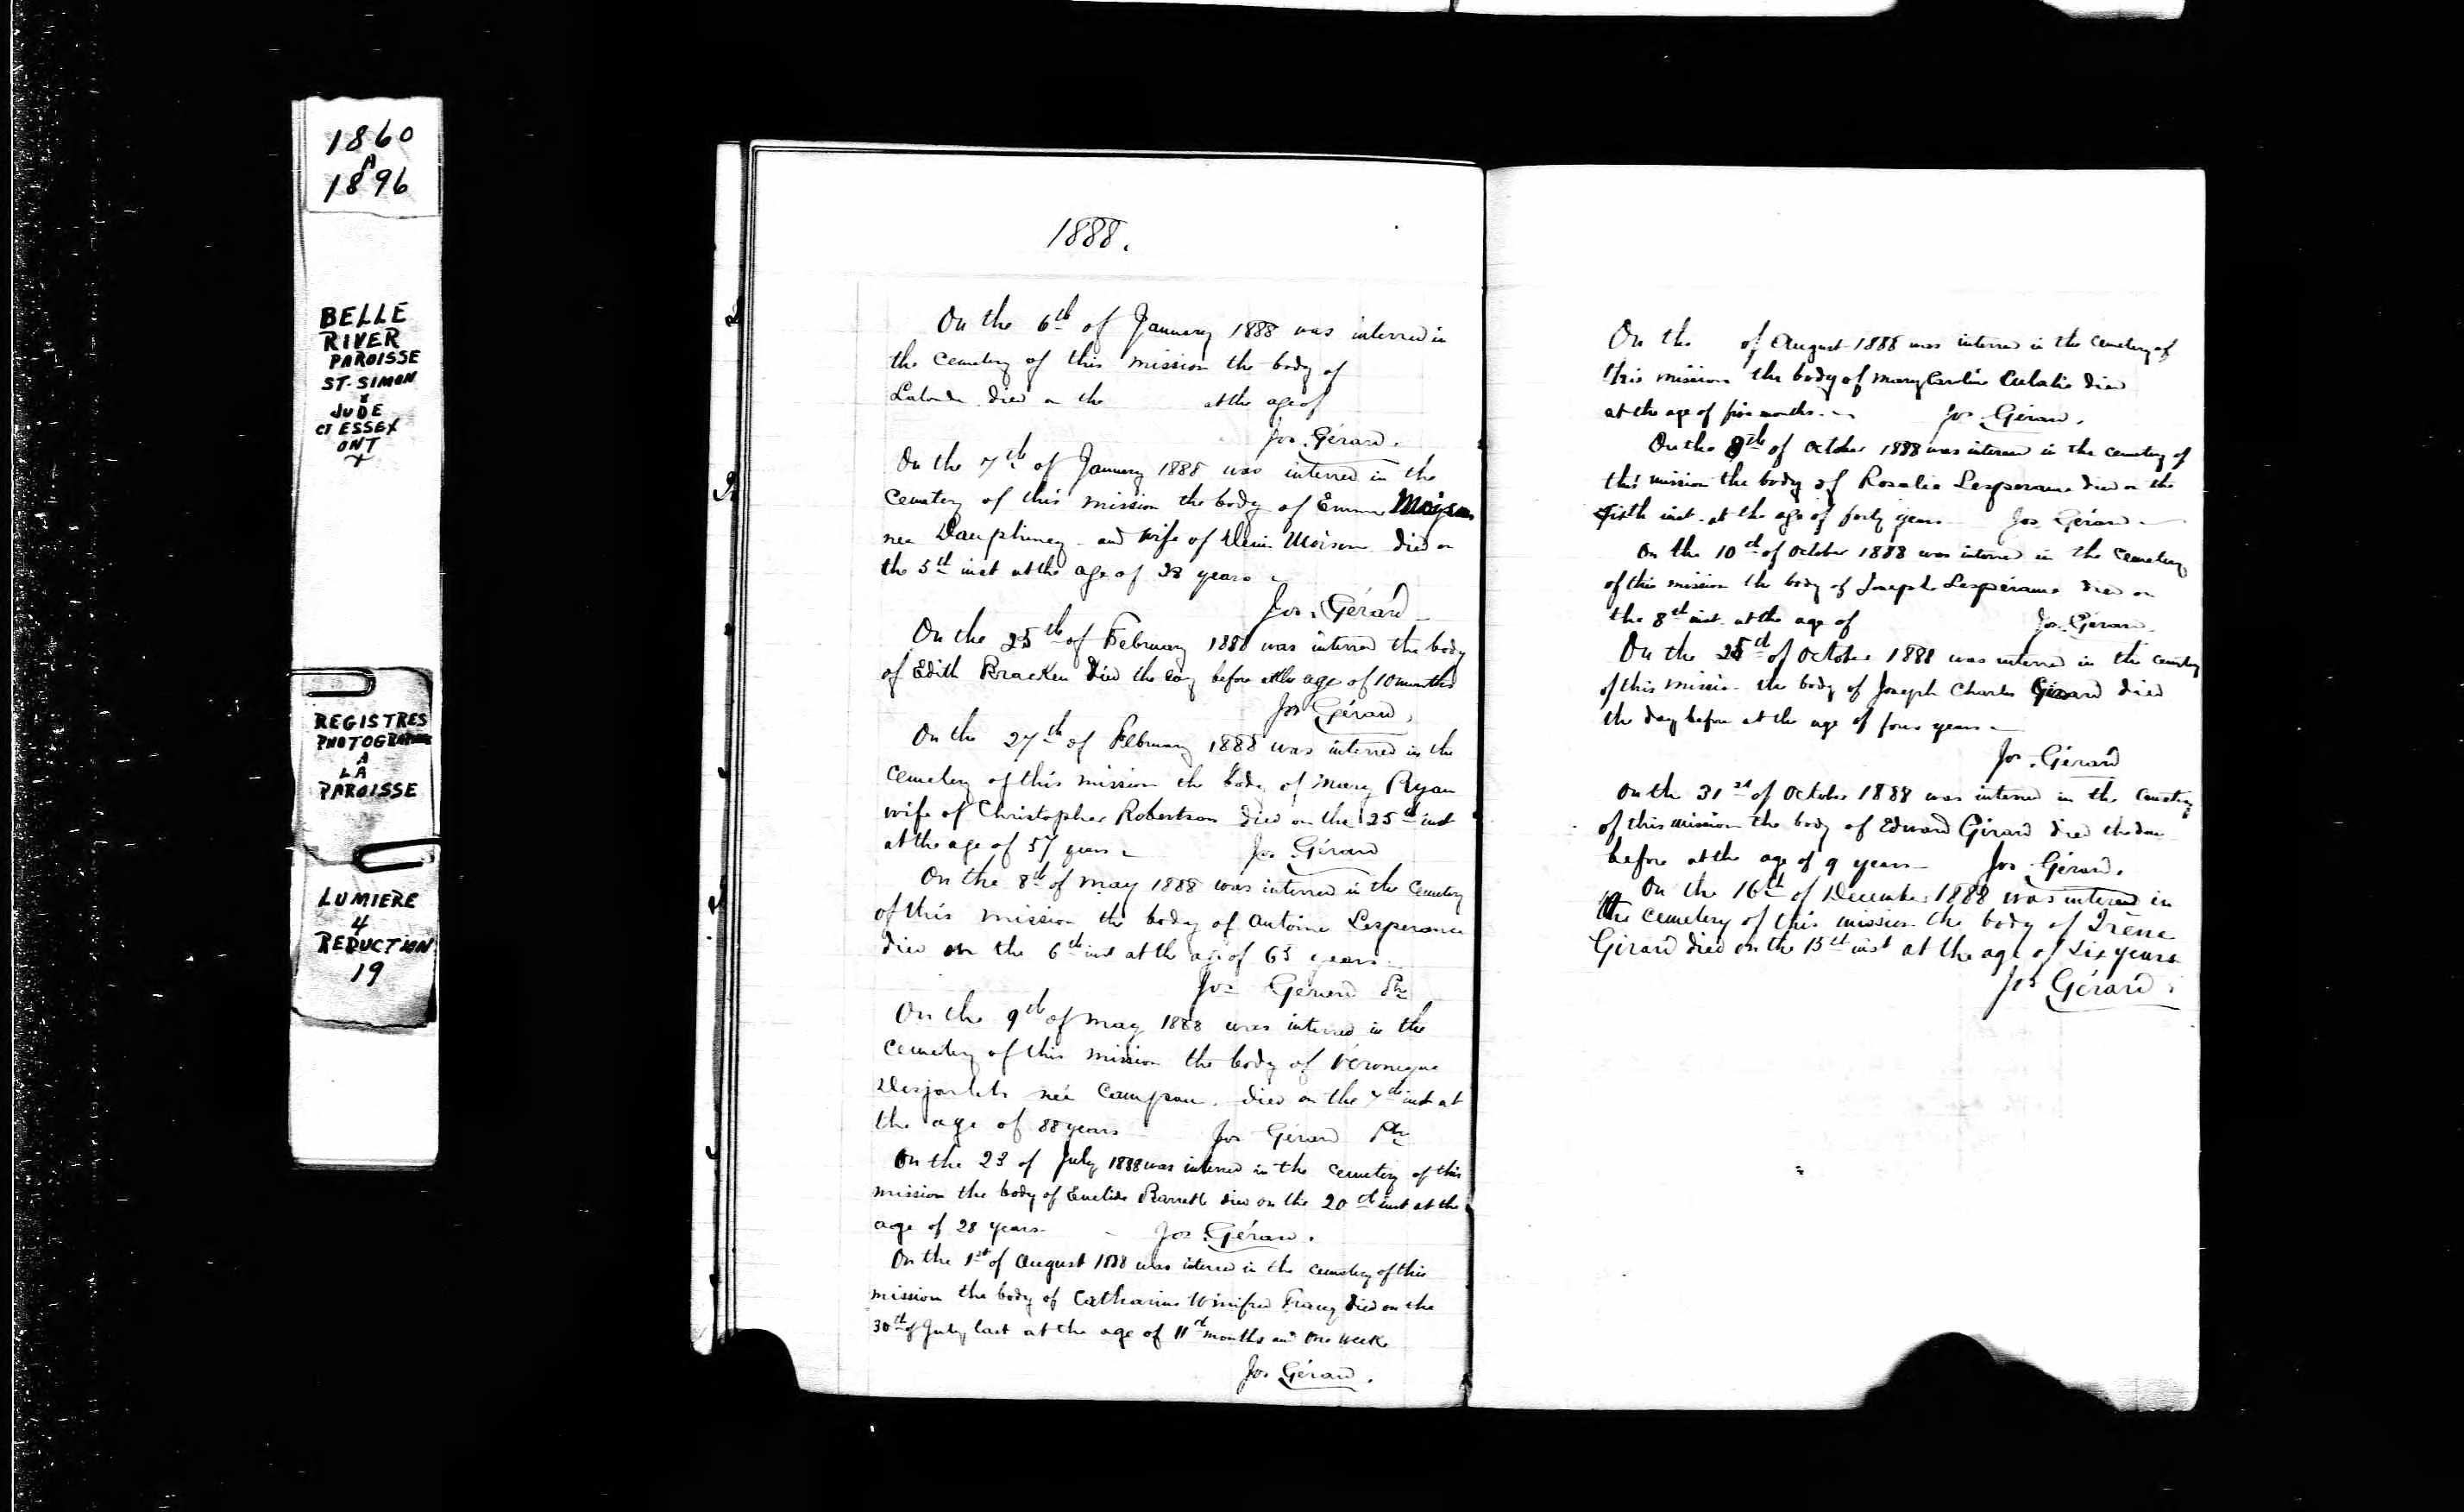 1860
A
1896
BELLE
RIVER
PAROISSE
ST-SIMON
&
JUDE
CT ESSEX
ONT
REGISTRES
PHOTOGRAPHIE
A
LA
PAROISSE
LUMIERE
4
REDUCTION
19
1888.
On the 6th of January 1888 was interred in
the Cemetery of this mission the body of
Lalonde died on the at the age of
Jos. Gérard.
On the 7th of January 1888 was interred in the
Cemetery of this mission the body of Emma
nee Dauphiney and wife of Moison died on
the 5th inst at the age of 28 years
Jos. Gérard
On the 25th of February 1888 was interred the body
of Edith Bracken died the day before at the age of 10 months
Jos Gérard.
On the 27th of February 1888 was interred in the
Cemetery of this mission the body of Mary Ryan
wife of Christopher Robertson died on the 25th inst
at the age of 57 years Jos Gérard
On the 8th of May 1888 was interred in the Cemetery
of this mission the body of Antoine Lesperance
died on the 6th inst at the age of 63 years.
Jos Gérard Ptr
On the 9th of May 1888 was interred in the
Cemetery of this mission the body of Veronique
née Campeau. died on the 7th inst at
the age of 88 years Jos Gérard Ptr
On the 23 of July 1888 was interred in the Cemetery of this
mission the body of Euclide Barrett died on the 20th inst at the
age of 28 years Jos. Gérard.
On the 1st of August 1888 was interred in the cemetery of this
mission the body of Catharine Winifred Tracy died on the
30th of July last at the age of 11th months and One week
Jos Gérard.
On the of August 1888 was interred in the Cemetery of
this mission the body of Mary Caroline Eulalie died
at the age of five months. Jos. Gérard.
On the 8th of October 1888 was interred in the cemetery of
this mission the body of Rosalie Lesperance died on the
inst. at the age of forty years Jos Gérard
On the 10th of October 1888 was interred in the Cemetery
of this mission the body of Joseph Lespérance died on
the 8th inst. at the age of Jos. Gérard
On the 25th of October 1888 was interred in the cemetery
of this mission the body of Joseph Charles Girard died
the day before at the age of four years
Jos. Gérard
On the 31st of October 1888 was interred in the Cemetery
of this mission the body of Edward Girard died the day
before at the age of 9 years Jos Gérard.
On the 16th of December 1888 was interred in
the cemetery of this mission the body of Irène
Girard died on the 15th inst at the age of six years
Jos Gérard